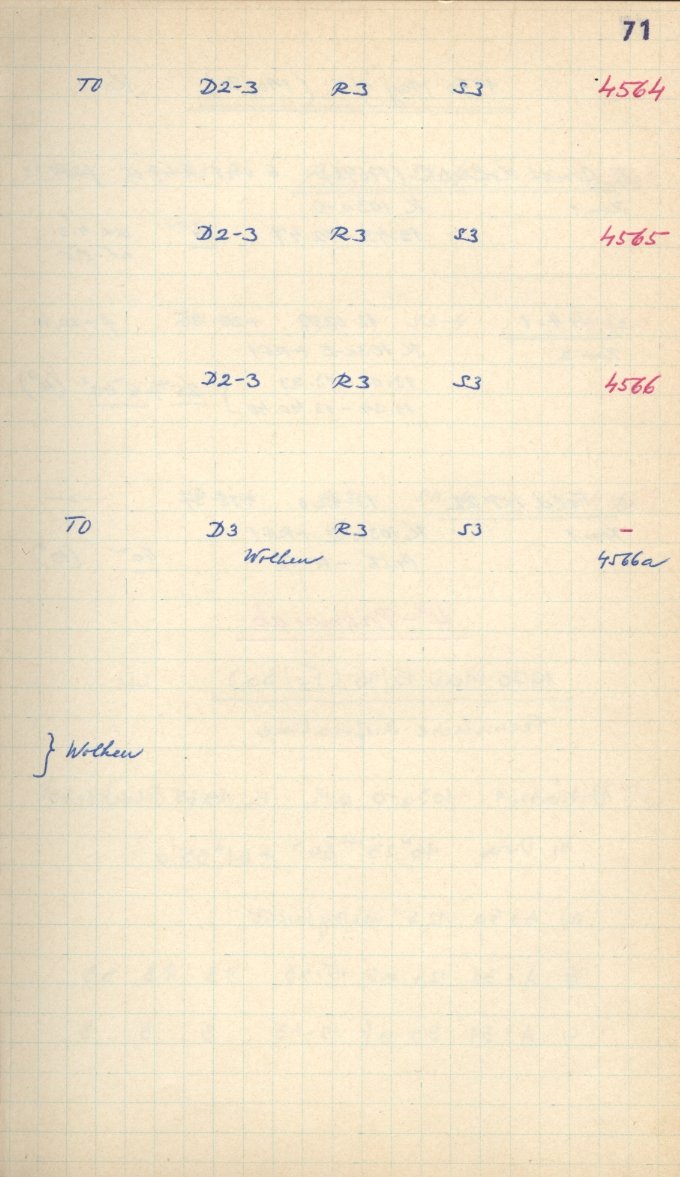 71
TO D2-3 R3 S3 4564
D2-3 R3 S3 4565
D2-3 R3 S3 4566
TO D3 R3 S3 -
Wolken 4566a
} Wolken